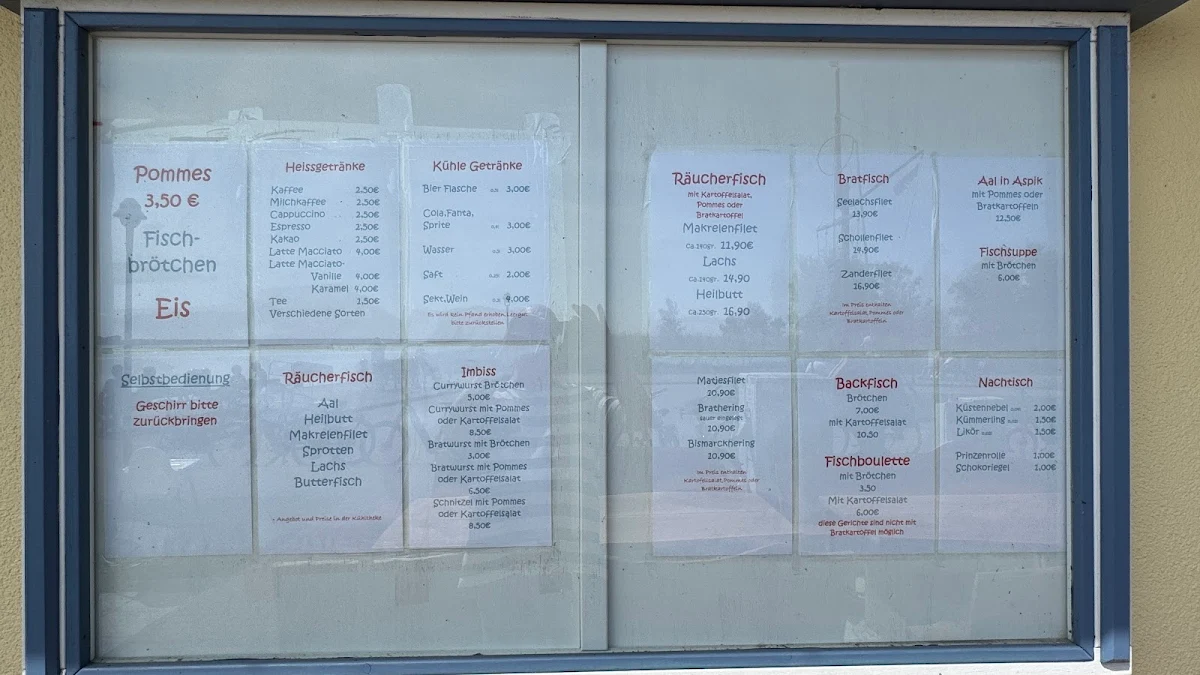 Pommes
3,50 €
Fisch-
brötchen
Eis
Heissgetränke
Kaffee 2,50€
Milchkaffee 2,50€
Cappuccino 2,50€
Espresso 2,50€
Kakao 2,50€
Latte Macciato 4,00€
Latte Macciato-
Vanille 4,00€
Karamel 4,00€
Tee 1,50€
Verschiedene Sorten
Kühle Getränke
Bier Flasche 3,00€
Cola,Fanta,
Sprite 3,00€
Wasser 3,00€
Saft 2,00€
Sekt,Wein 4,00€
Es wird kein Pfand erhoben, Leergut
bitte zurückstellen
Selbstbedienung
Geschirr bitte
zurückbringen
Räucherfisch
Aal
Heilbutt
Makrelenfilet
Sprotten
Lachs
Butterfisch
- Angebot und Preise in der Kühltheke
Imbiss
Currywurst Brötchen
5,00€
Currywurst mit Pommes
oder Kartoffelsalat
8,50€
Bratwurst mit Brötchen
3,00€
Bratwurst mit Pommes
oder Kartoffelsalat
6,50€
Schnitzel mit Pommes
oder Kartoffelsalat
8,50€
Räucherfisch
mit Kartoffelsalat,
Pommes oder
Bratkartoffel
Makrelenfilet
ca.140gr. 11,90€
Lachs
ca.140gr. 14,90
Heilbutt
ca.250gr. 16,90
Bratfisch
Seelachsfilet
13,90€
Schollenfilet
14,90€
Zanderfilet
16,90€
im Preis enthalten
Kartoffelsalat,Pommes oder
Bratkartoffeln
Aal in Aspik
mit Pommes oder
Bratkartoffeln
12,50€
Fischsuppe
mit Brötchen
6,00€
Matjesfilet
10,90€
Brathering
sauer eingelegt
10,90€
Bismarckhering
10,90€
im Preis enthalten
Kartoffelsalat,Pommes oder
Bratkartoffeln
Backfisch
Brötchen
7,00€
mit Kartoffelsalat
10,50
Fischboulette
mit Brötchen
3,50
Mit Kartoffelsalat
6,00€
diese Gerichte sind nicht mit
Bratkartoffel möglich
Nachtisch
Küstennebel 2,00€
Kümmerling 1,50€
Likör 1,50€
Prinzenrolle 1,00€
Schokoriegel 1,00€